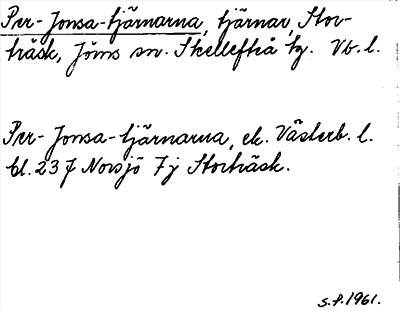 Per-Jonsa-tjärnarna, tjärnar, Stor-
träsk, Jörns sn. Skellefteå tg. Vb. l.
Per-Jonsa-tjärnarna, ek. Västerb. l.
bl. 23 J Norsjö 7 j Storträsk.
S.P. 1961.